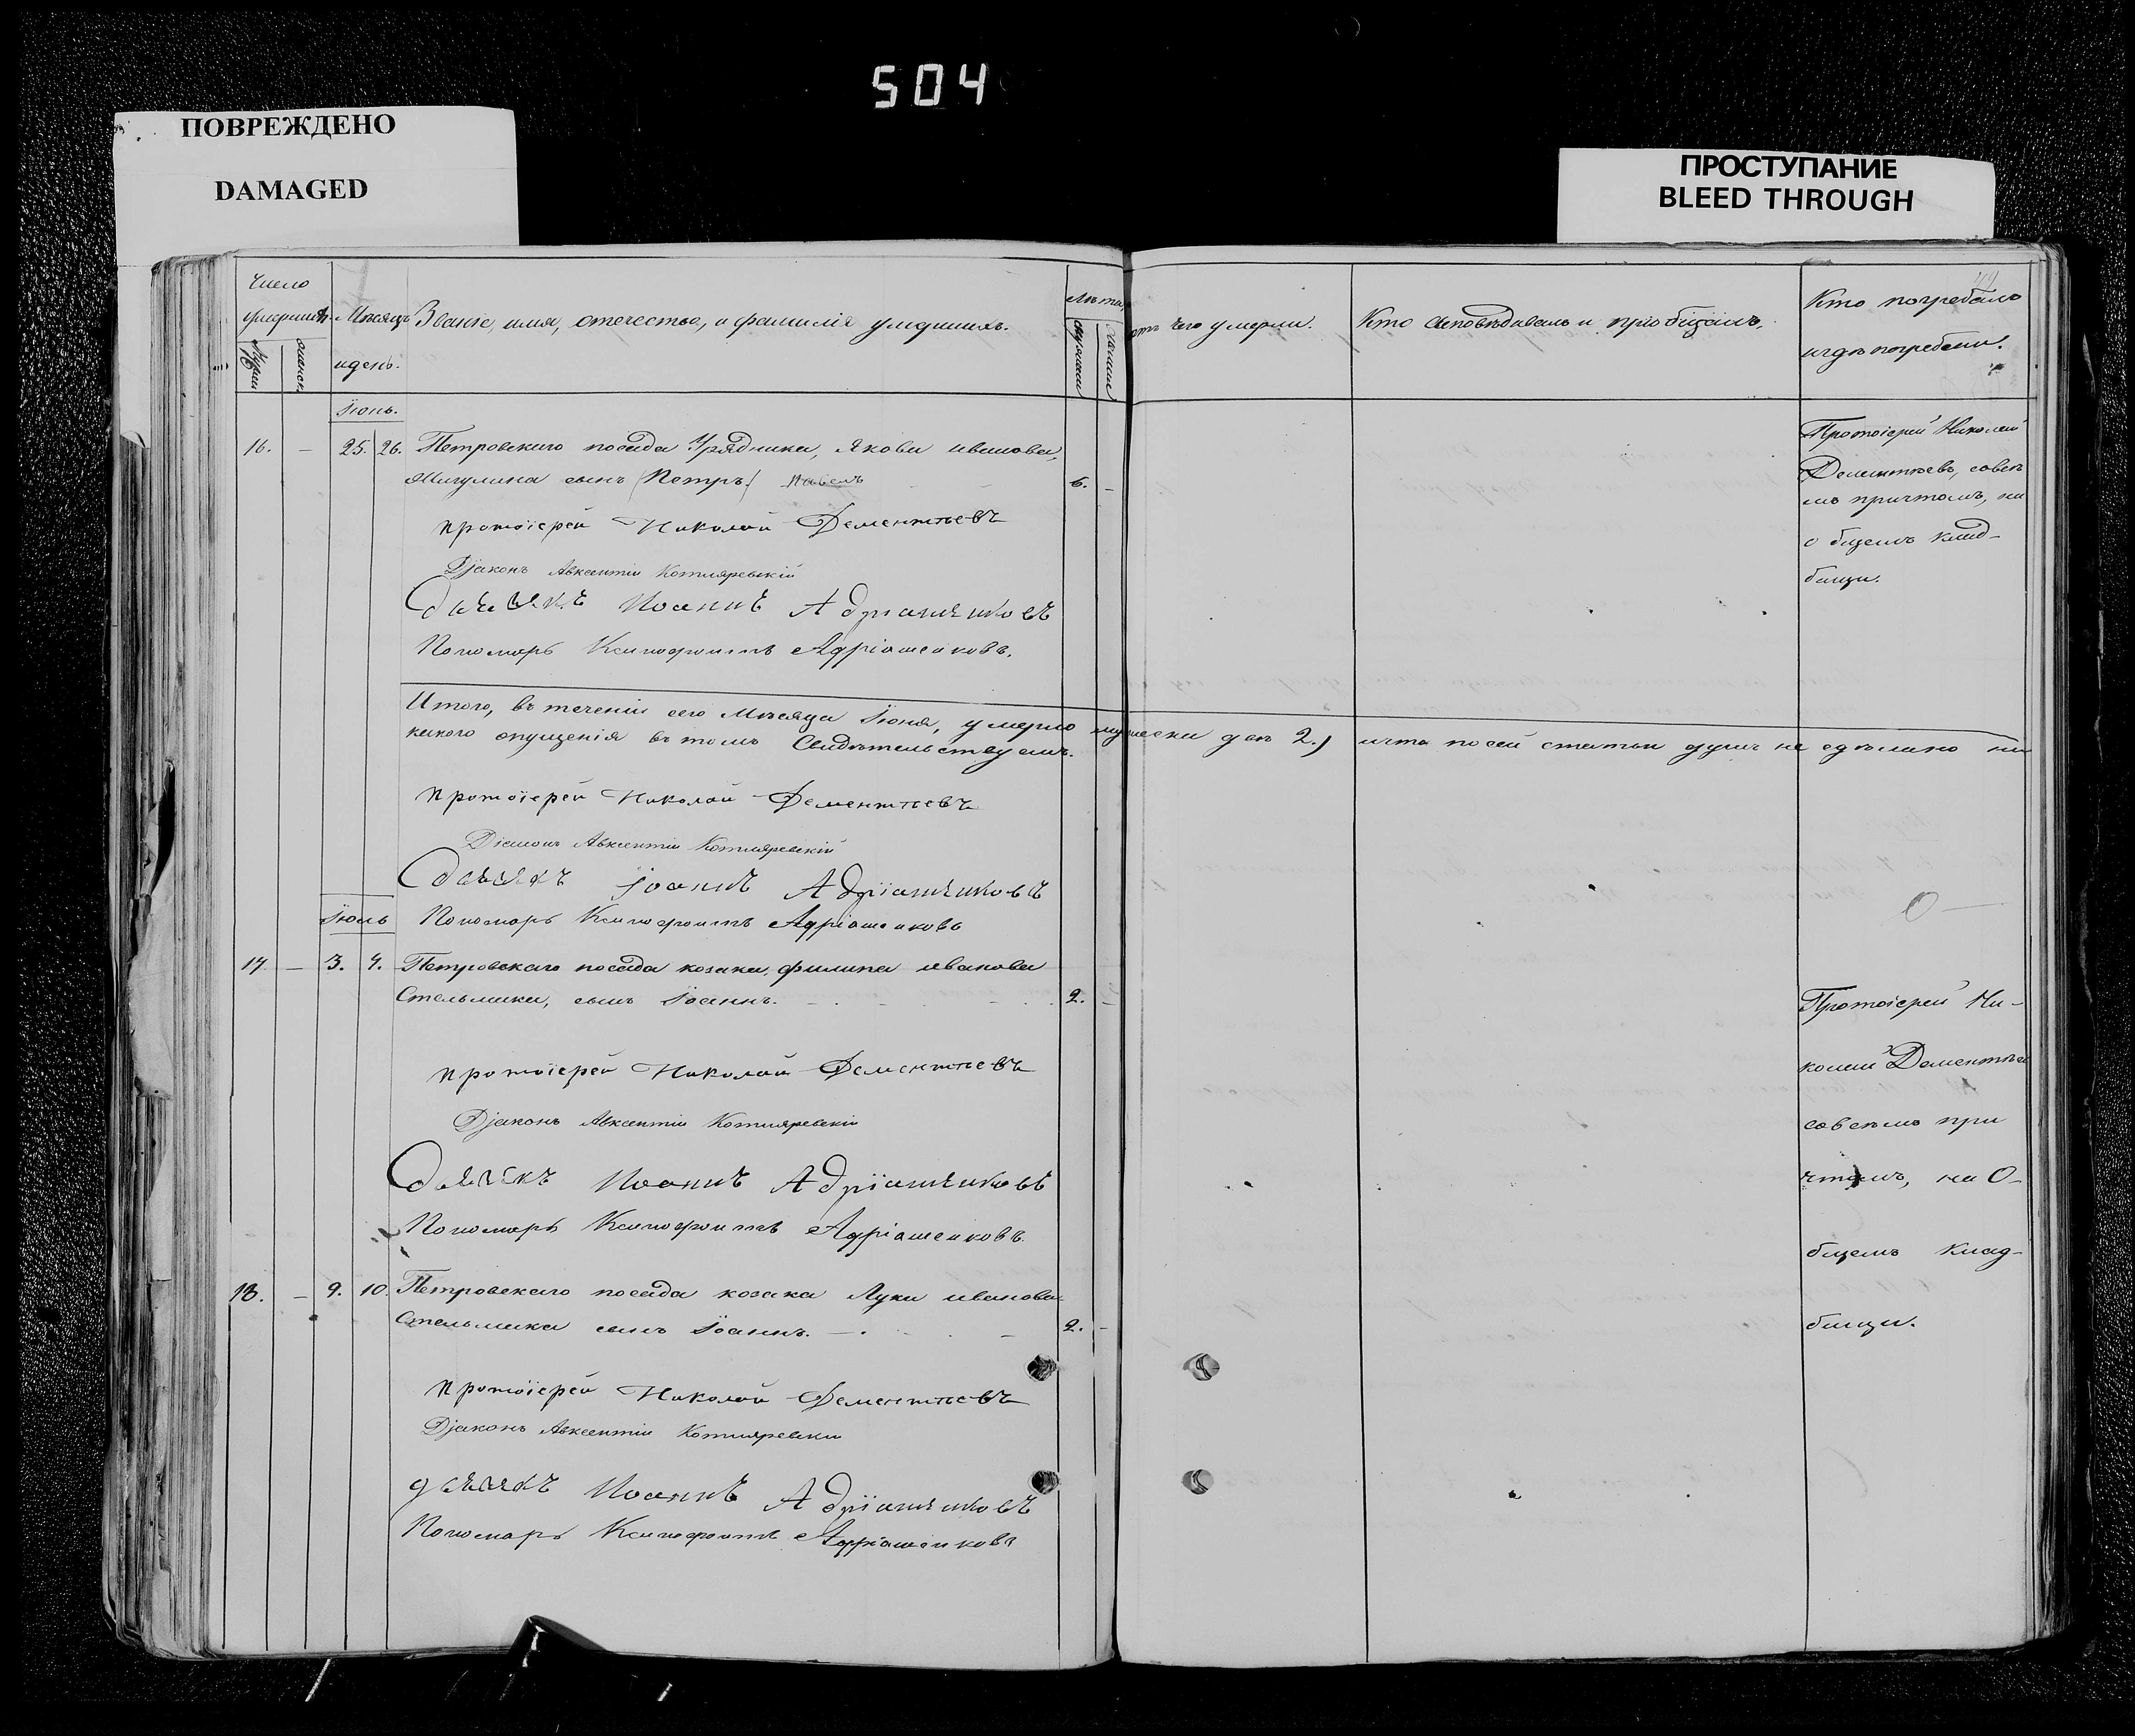 504
ПОВРЕЖДЕНО
DAMAGED
ПРОСТУПАНИЕ
BLEED THROUGH
Число
умершихъ
Мужеск
женск.
Мѣсяцъ
и день.
Званіе, имя, отечество, и фамилія умершихъ.
Лѣта
мужеска
женска
отъ чего умерли.
Кто исповѣдывалъ и пріобщалъ.
Кто погребалъ
и гдѣ погребены.
Іюнь.
16. – 25. 26. Петровскаго посада Урядника, Якова иванова,
Жигулина сынъ (Петръ) Павелъ 6. –
Протоіерей Николай Дементьевъ
Діаконъ Авксентій Котляревскій
Дьячекъ Иоаннъ Адріяшенковъ
Пономарь Ксенофонтъ Адріашенковъ.
Протоіерей Николай
Дементьевъ, совсѣ
мъ причтомъ, на
общемъ клад-
бищи.
Итого, въ теченіи сего Мѣсяца Іюня, умерло мужеска два 2.) ичто посей статьи душъ не сдѣлано ни
какого опущенія въ томъ Свидѣтельствуемъ.
Протоіерей Николай Дементьевъ
Діаконъ Авксентій Котляревскій
Дьячекъ Іоаннъ Адріяшенковъ
Пономарь Ксенофонтъ Адріашенковъ
Іюль
17. – 3. 4. Петровскаго посада козака, филипа иванова
Стельмака, сынъ Іоаннъ. 2. –
Протоіерей Николай Дементьевъ
Діаконъ Авксентій Котляревскій
Дьячекъ Иоаннъ Адріяшенковъ
Пономарь Ксенофонтъ Адріашенковъ.
Протоіерей Ни-
колай Дементьев
совсѣмъ при
чтомъ, на О-
бщемъ клад-
бищи.
18. – 9. 10. Петровскаго посада козака Луки иванова
Стельмака сынъ Іоаннъ. 2. –
Протоіерей Николай Дементьевъ
Діаконъ Авксентій Котляревски
дьячекъ Иоаннъ Адріяшенковъ
Пономарь Ксенофонтъ Адріашенковъ